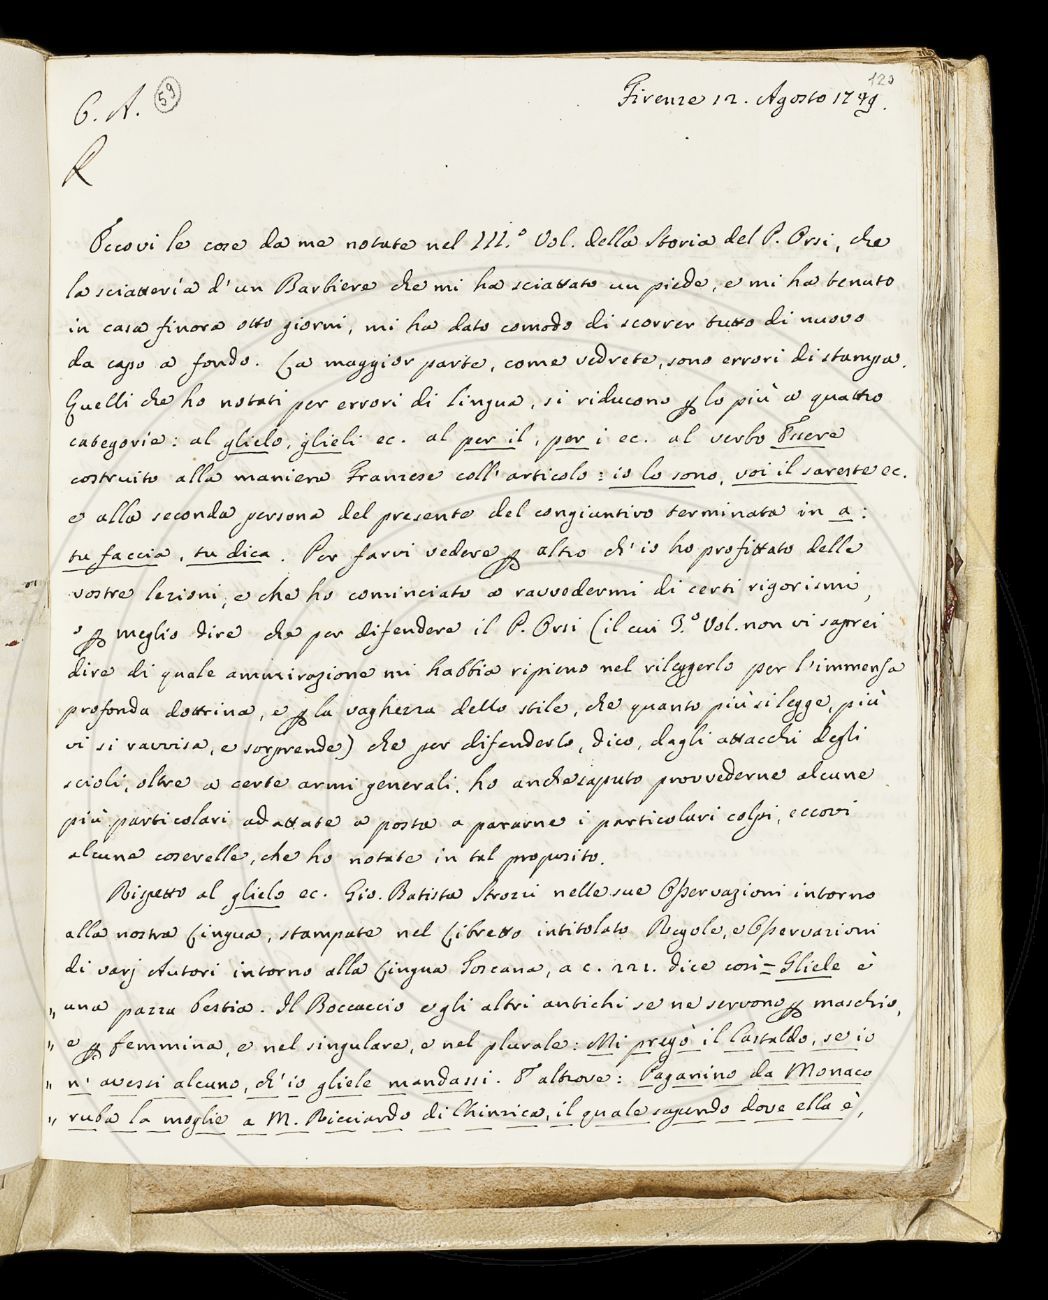 120
C. A. 59
Firenze 12. Agosto 1749.
R
Eccovi le cose da me notate nel III.° Vol. della Storia del P. Orsi, che
la sciatteria d'un Barbiere che mi ha sciattato un piede, e mi ha tenuto
in casa finora otto giorni, mi ha dato comodo di scorrer tutto di nuovo
da capo a fondo. La maggior parte, come vedrete, sono errori di stampa.
Quelli che ho notati per errori di lingua, si riducono p lo più a quattro
categorie: al glielo, glieli ec. al per il, per i ec. al verbo Essere
costruito alla maniera Franzese coll'articolo: io lo sono, voi il sareste ec.
e alla seconda persona del presente del congiuntivo terminata in a:
tu faccia, tu dica. Per farvi vedere p altro ch'io ho profittato delle
vostre lezioni, e che ho cominciato a ravvedermi di certi rigorismi,
o p meglio dire che per difendere il P. Orsi (il cui 3.° Vol. non vi saprei
dire di quale ammirazione mi habbia ripieno nel rileggerlo per l'immensa
profonda dottrina, e p la vaghezza dello stile, che quanto più si legge, più
vi si ravvisa, e sorprende) che per difenderlo, dico, dagli attacchi degli
scioli, oltre a certe armi generali, ho anche saputo provvederne alcune
più particolari adattate a posta a pararne i particolari colpi, eccovi
alcune coserelle, che ho notate in tal proposito.
Rispetto al glielo ec. Gio. Batista Strozzi nelle sue Osservazioni intorno
alla nostra Lingua, stampate nel Libretto intitolato Regole, e Osservazioni
di varj Autori intorno alla Lingua Toscana, a c. 221. dice così = Gliele è
„ una pazza bestia. Il Boccaccio e gli altri antichi se ne servono p maschio,
„ e p femmina, e nel singulare, e nel plurale: Mi pregò il Castaldo, se io
„ n'avessi alcuno, ch'io gliele mandassi. E altrove: Paganino da Monaco
„ ruba la moglie a M. Ricciardo di Chinzica, il quale sapendo dove ella è,